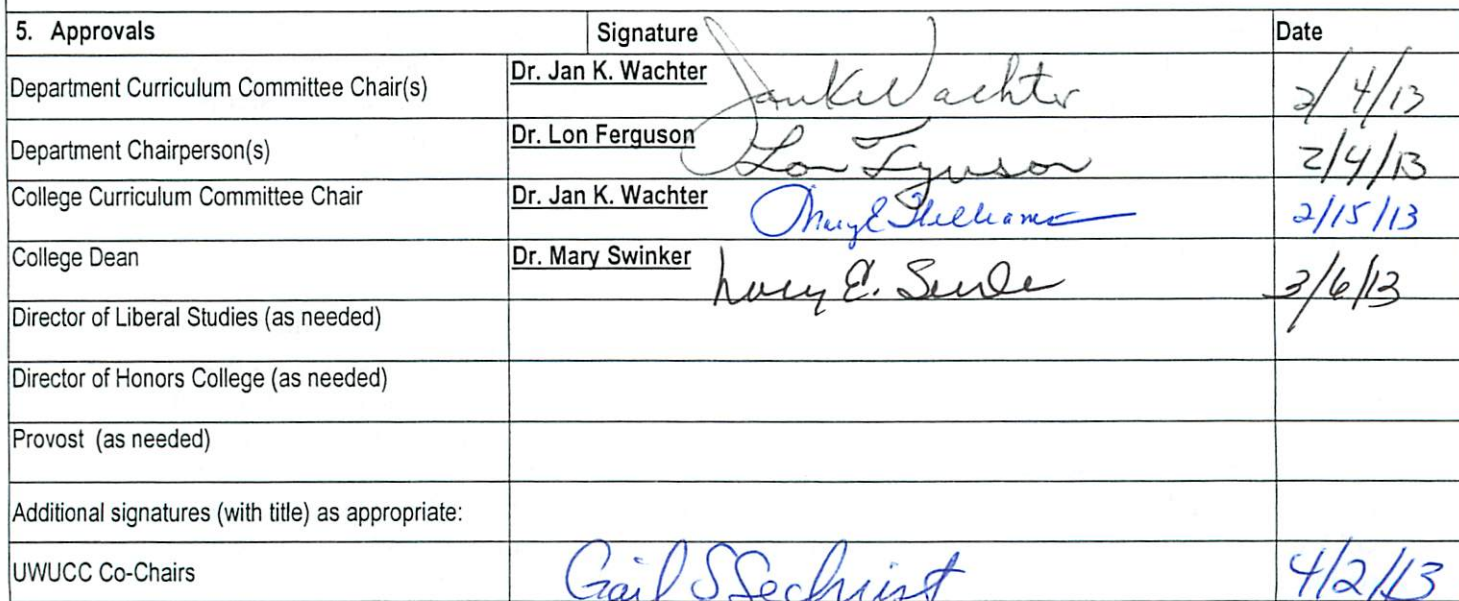 5. Approvals Signature Date
Department Curriculum Committee Chair(s) Dr. Jan K. Wachter Jan K Wachter 2/4/13
Department Chairperson(s) Dr. Lon Ferguson Lon Ferguson 2/4/13
College Curriculum Committee Chair Dr. Jan K. Wachter Mary E Williams 2/15/13
College Dean Dr. Mary Swinker Mary E. Swinker 3/6/13
Director of Liberal Studies (as needed)
Director of Honors College (as needed)
Provost (as needed)
Additional signatures (with title) as appropriate:
UWUCC Co-Chairs Gail S Sechrist 4/2/13